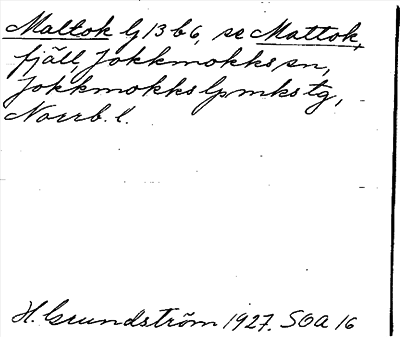 Maltok lj 13 b 6, se Mattok,
fjäll, Jokkmokks sn,
Jokkmokks lpmks tg,
Norrb. l.
H. Grundström 1927. SOA 16